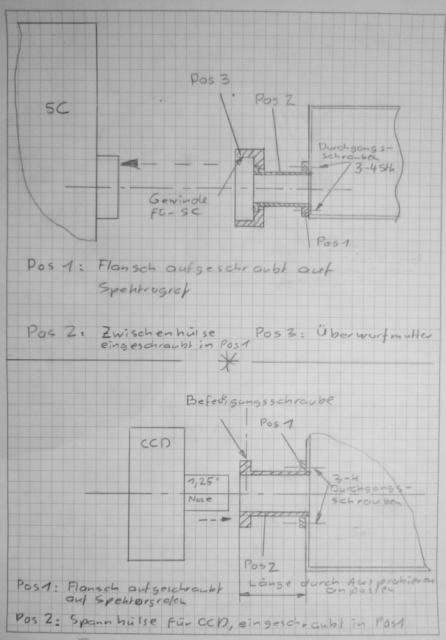 Pos 3
SC
Pos 2
Durchgangs-
schrauben
3-4 Stk
Gewinde
für SC
Pos 1
Pos 1: Flansch aufgeschraubt auf
Spektrograf
Pos 2: Zwischenhülse
eingeschraubt in Pos1
Pos 3: Überwurfmutter
Befestigungsschraube
Pos 1
CCD
1,25"
Nase
3-4
Durchgangs-
schrauben
Pos2
Länge durch Ausprobieren
anpassen
Pos1: Flansch aufgeschraubt
auf Spektrografen
Pos 2: Spannhülse für CCD, eingeschraubt in Pos1